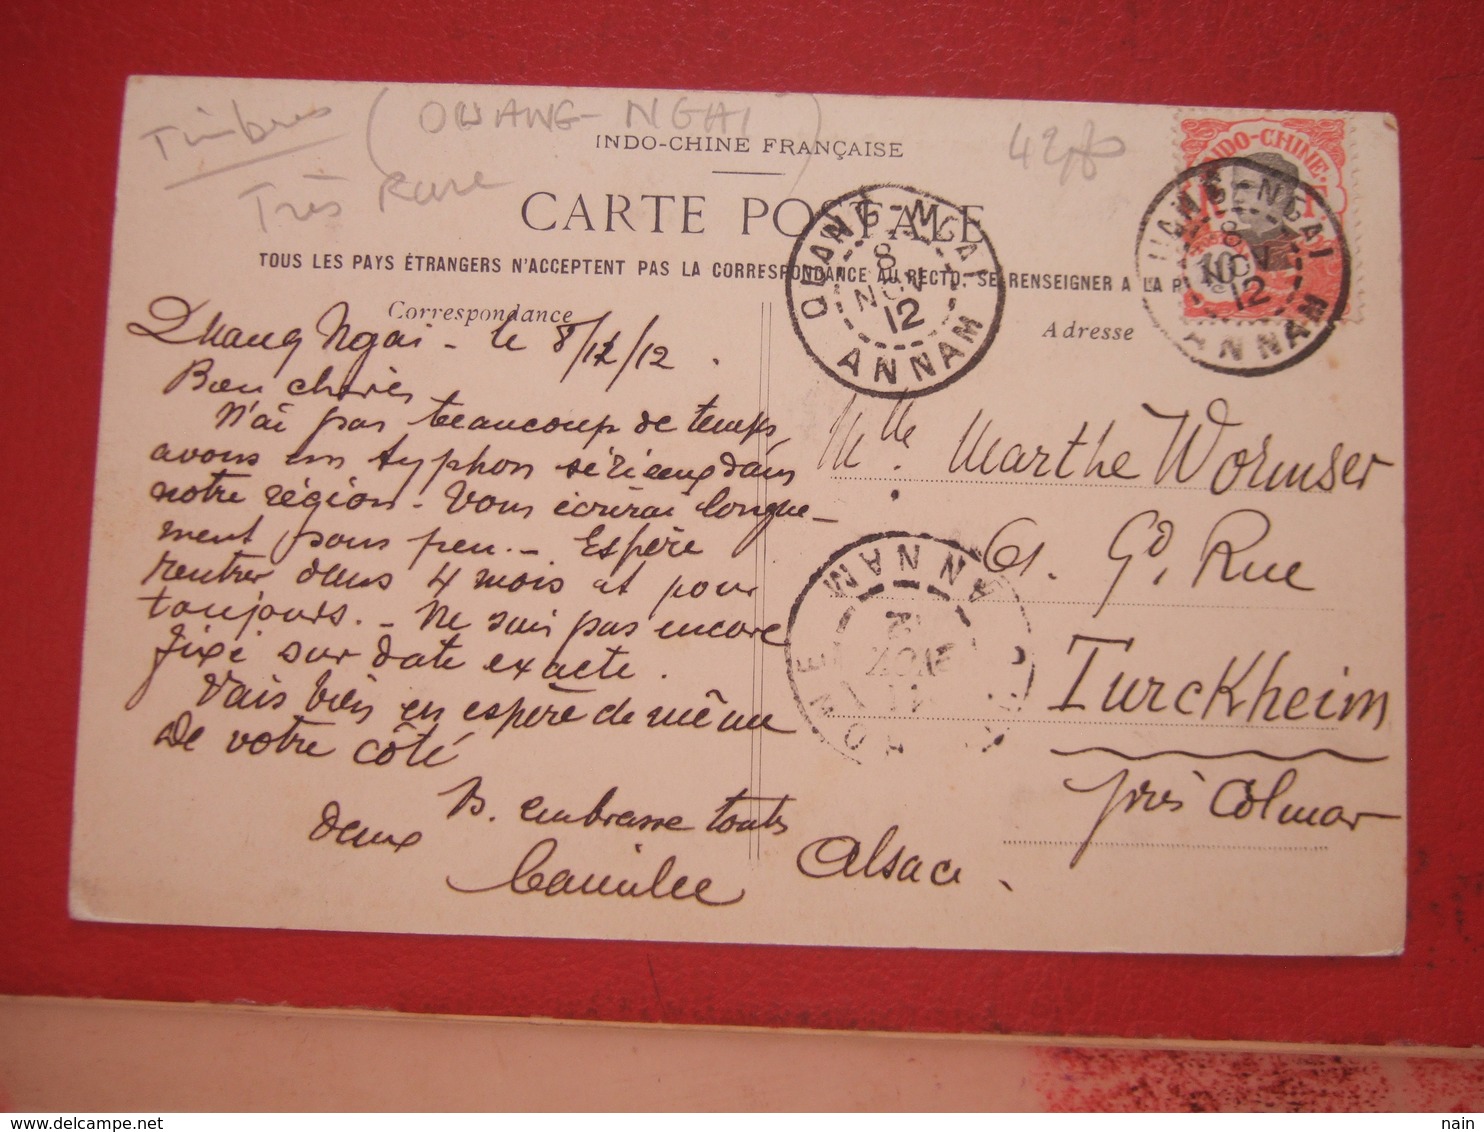 Timbres (QUANG-NGAI)
Très Rare
INDO-CHINE FRANÇAISE
CARTE POSTALE
TOUS LES PAYS ÉTRANGERS N'ACCEPTENT PAS LA CORRESPONDANCE AU RECTO. SE RENSEIGNER A LA P
Correspondance
Adresse
INDO-CHINE
10
QUANG-NGAI
8
NOV
12
ANNAM
QUANG-NGAI
8
NOV
12
ANNAM
Quang Ngai - le 8/11/12.
Bien chères
N'ai pas beaucoup de temps,
avons un typhon sérieux dans
notre région - Vous écrirai longue-
ment sous peu. - Espère
rentrer dans 4 mois et pour
toujours. - Ne suis pas encore
fixé sur date exacte.
Vais bien en espère de même
de votre côté
B. embrasse toutes
deux
Camille
Mlle. Marthe Wormser
61. Gd. Rue
Turckheim
près Colmar
Alsace.
ANNAM
nain